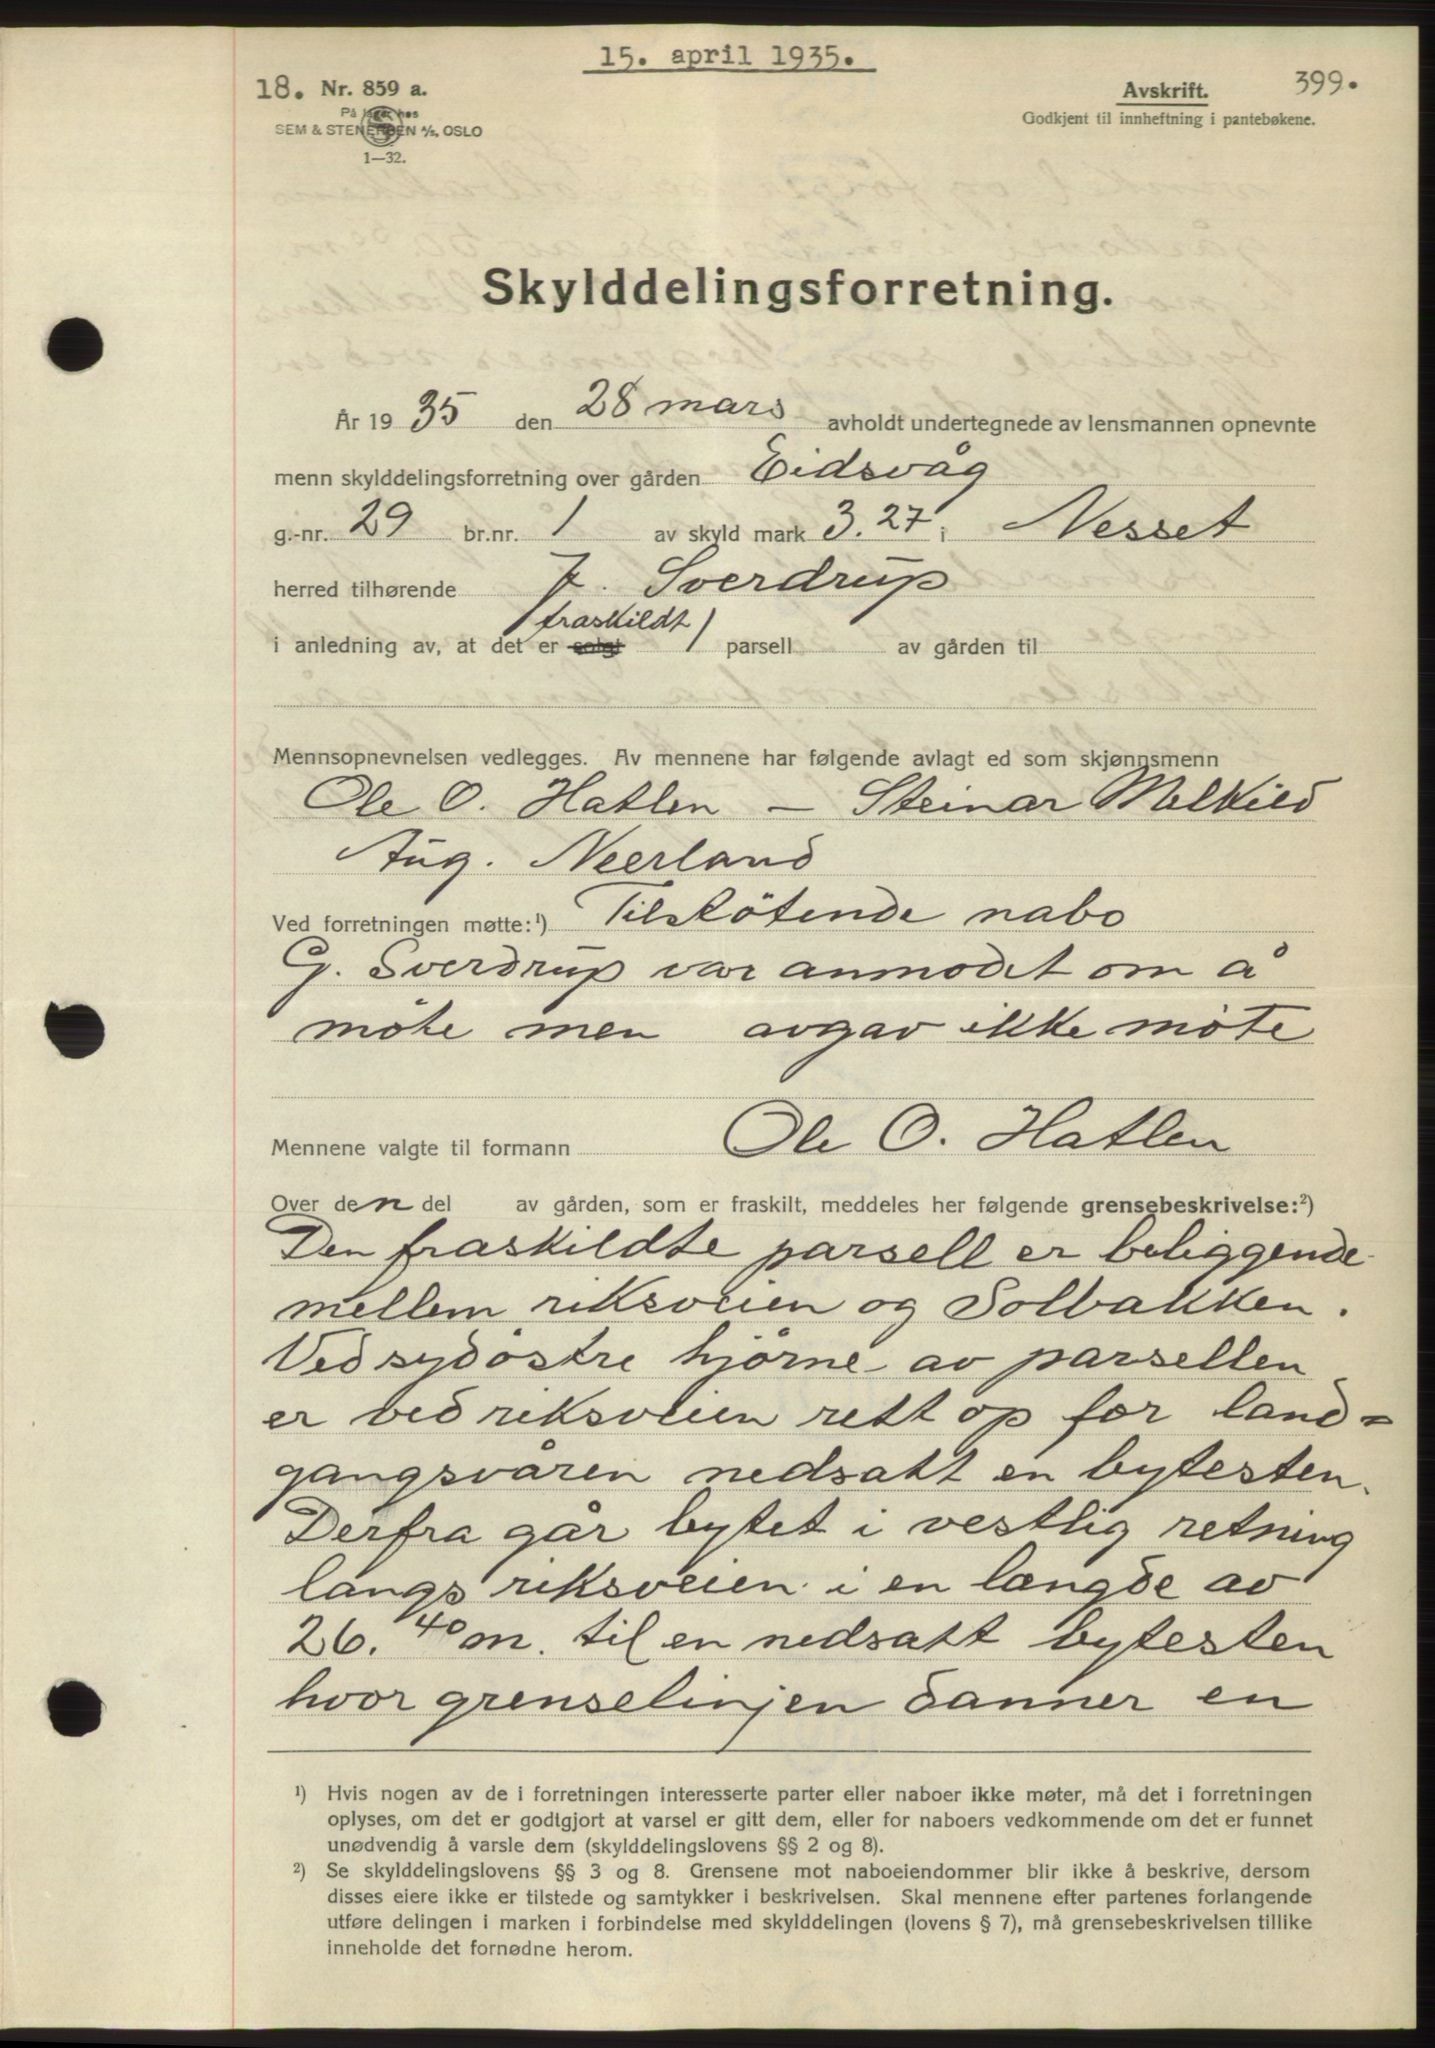 15. april 1935.
18. Nr. 859 a.
Avskrift.
399.
På lager hos
SEM & STENERSEN A/S, OSLO
Godkjent til innheftning i pantebøkene.
1—32.
Skylddelingsforretning.
År 1935 den 28 mars avholdt undertegnede av lensmannen opnevnte
menn skylddelingsforretning over gården Eidsvåg
g.-nr. 29 br.nr. 1 av skyld mark 3.27 i Nesset
herred tilhørende J. Sverdrup
fraskildt
i anledning av, at det er solgt 1 parsell av gården til
Mennsopnevnelsen vedlegges. Av mennene har følgende avlagt ed som skjønnsmenn
Ole O. Hatlen — Steinar Melkild
Aug. Neerland
Ved forretningen møtte:¹) Tilstötende nabo
G. Sverdrup var anmodet om å
möte men avgav ikke möte
Mennene valgte til formann Ole O. Hatlen
Over den del av gården, som er fraskilt, meddeles her følgende grensebeskrivelse:²)
Den fraskildte parsell er beliggende
mellem riksveien og Solbakken.
Ved sydöstre hjörne av parsellen
er ved riksveien rett op for land=
gangsvåren nedsatt en bytesten.
Derfra går bytet i vestlig retning
langs riksveien i en længde av
26.40 m. til en nedsatt bytesten
hvor grenselinjen danner en
¹) Hvis nogen av de i forretningen interesserte parter eller naboer ikke møter, må det i forretningen
oplyses, om det er godtgjort at varsel er gitt dem, eller for naboers vedkommende om det er funnet
unødvendig å varsle dem (skylddelingslovens §§ 2 og 8).
²) Se skylddelingslovens §§ 3 og 8. Grensene mot naboeiendommer blir ikke å beskrive, dersom
disses eiere ikke er tilstede og samtykker i beskrivelsen. Skal mennene efter partenes forlangende
utføre delingen i marken i forbindelse med skylddelingen (lovens § 7), må grensebeskrivelsen tillike
inneholde det fornødne herom.